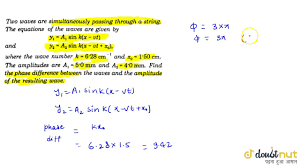 Two waves are simultaneously passing through a string.
The equations of the waves are given by
y₁ = A₁ sin k(x - vt)
and y₂ = A₂ sin k(x - vt + x₀),
where the wave number k = 6·28 cm⁻¹ and x₀ = 1·50 cm.
The amplitudes are A₁ = 5·0 mm and A₂ = 4·0 mm. Find
the phase difference between the waves and the amplitude
of the resulting wave.
ϕ = 3×π
ϕ = 3π
y₁ = A₁ sin k(x - vt)
y₂ = A₂ sin k(x - vt + x₀)
phase = kx₀
diff
= 6.28 × 1.5 = 9.42
doubtnut